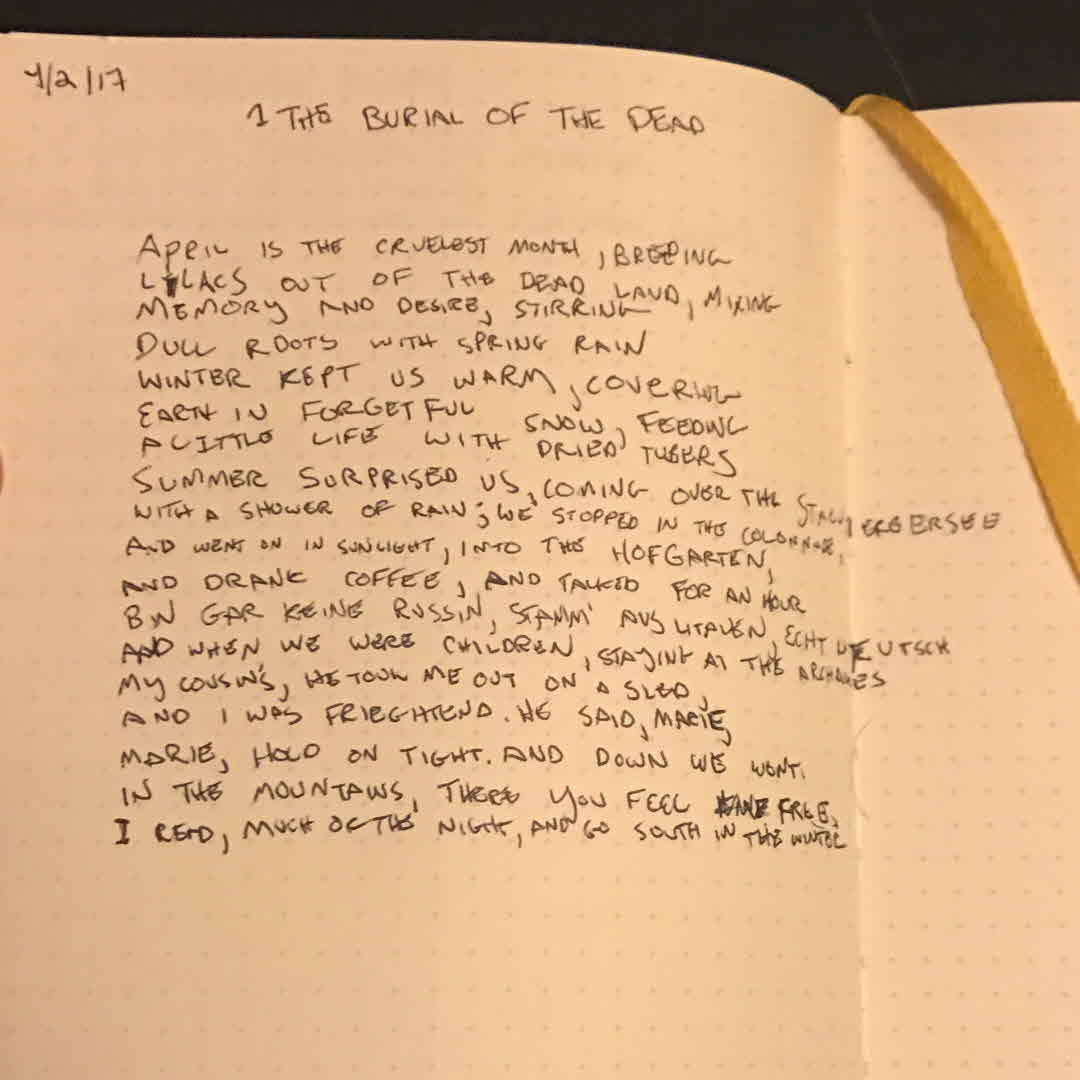 1/2/17
1 THE BURIAL OF THE DEAD
APRIL IS THE CRUELEST MONTH, BREEDING
LILACS OUT OF THE DEAD LAND, MIXING
MEMORY AND DESIRE, STIRRING
DULL ROOTS WITH SPRING RAIN
WINTER KEPT US WARM, COVERING
EARTH IN FORGETFUL SNOW, FEEDING
A LITTLE LIFE WITH DRIED TUBERS
SUMMER SURPRISED US, COMING OVER THE STARNBERGERSEE
WITH A SHOWER OF RAIN; WE STOPPED IN THE COLONNADE,
AND WENT ON IN SUNLIGHT, INTO THE HOFGARTEN,
AND DRANK COFFEE, AND TALKED FOR AN HOUR
BIN GAR KEINE RUSSIN, STAMM' AUS LITAUEN, ECHT DEUTSCH
AND WHEN WE WERE CHILDREN, STAYING AT THE ARCHDUKES
MY COUSIN'S, HE TOOK ME OUT ON A SLED,
AND I WAS FRIEGHTEND. HE SAID, MARIE,
MARIE, HOLD ON TIGHT. AND DOWN WE WENT.
IN THE MOUNTAINS, THERE YOU FEEL FREE,
I READ, MUCH OF THE NIGHT, AND GO SOUTH IN THE WINTER